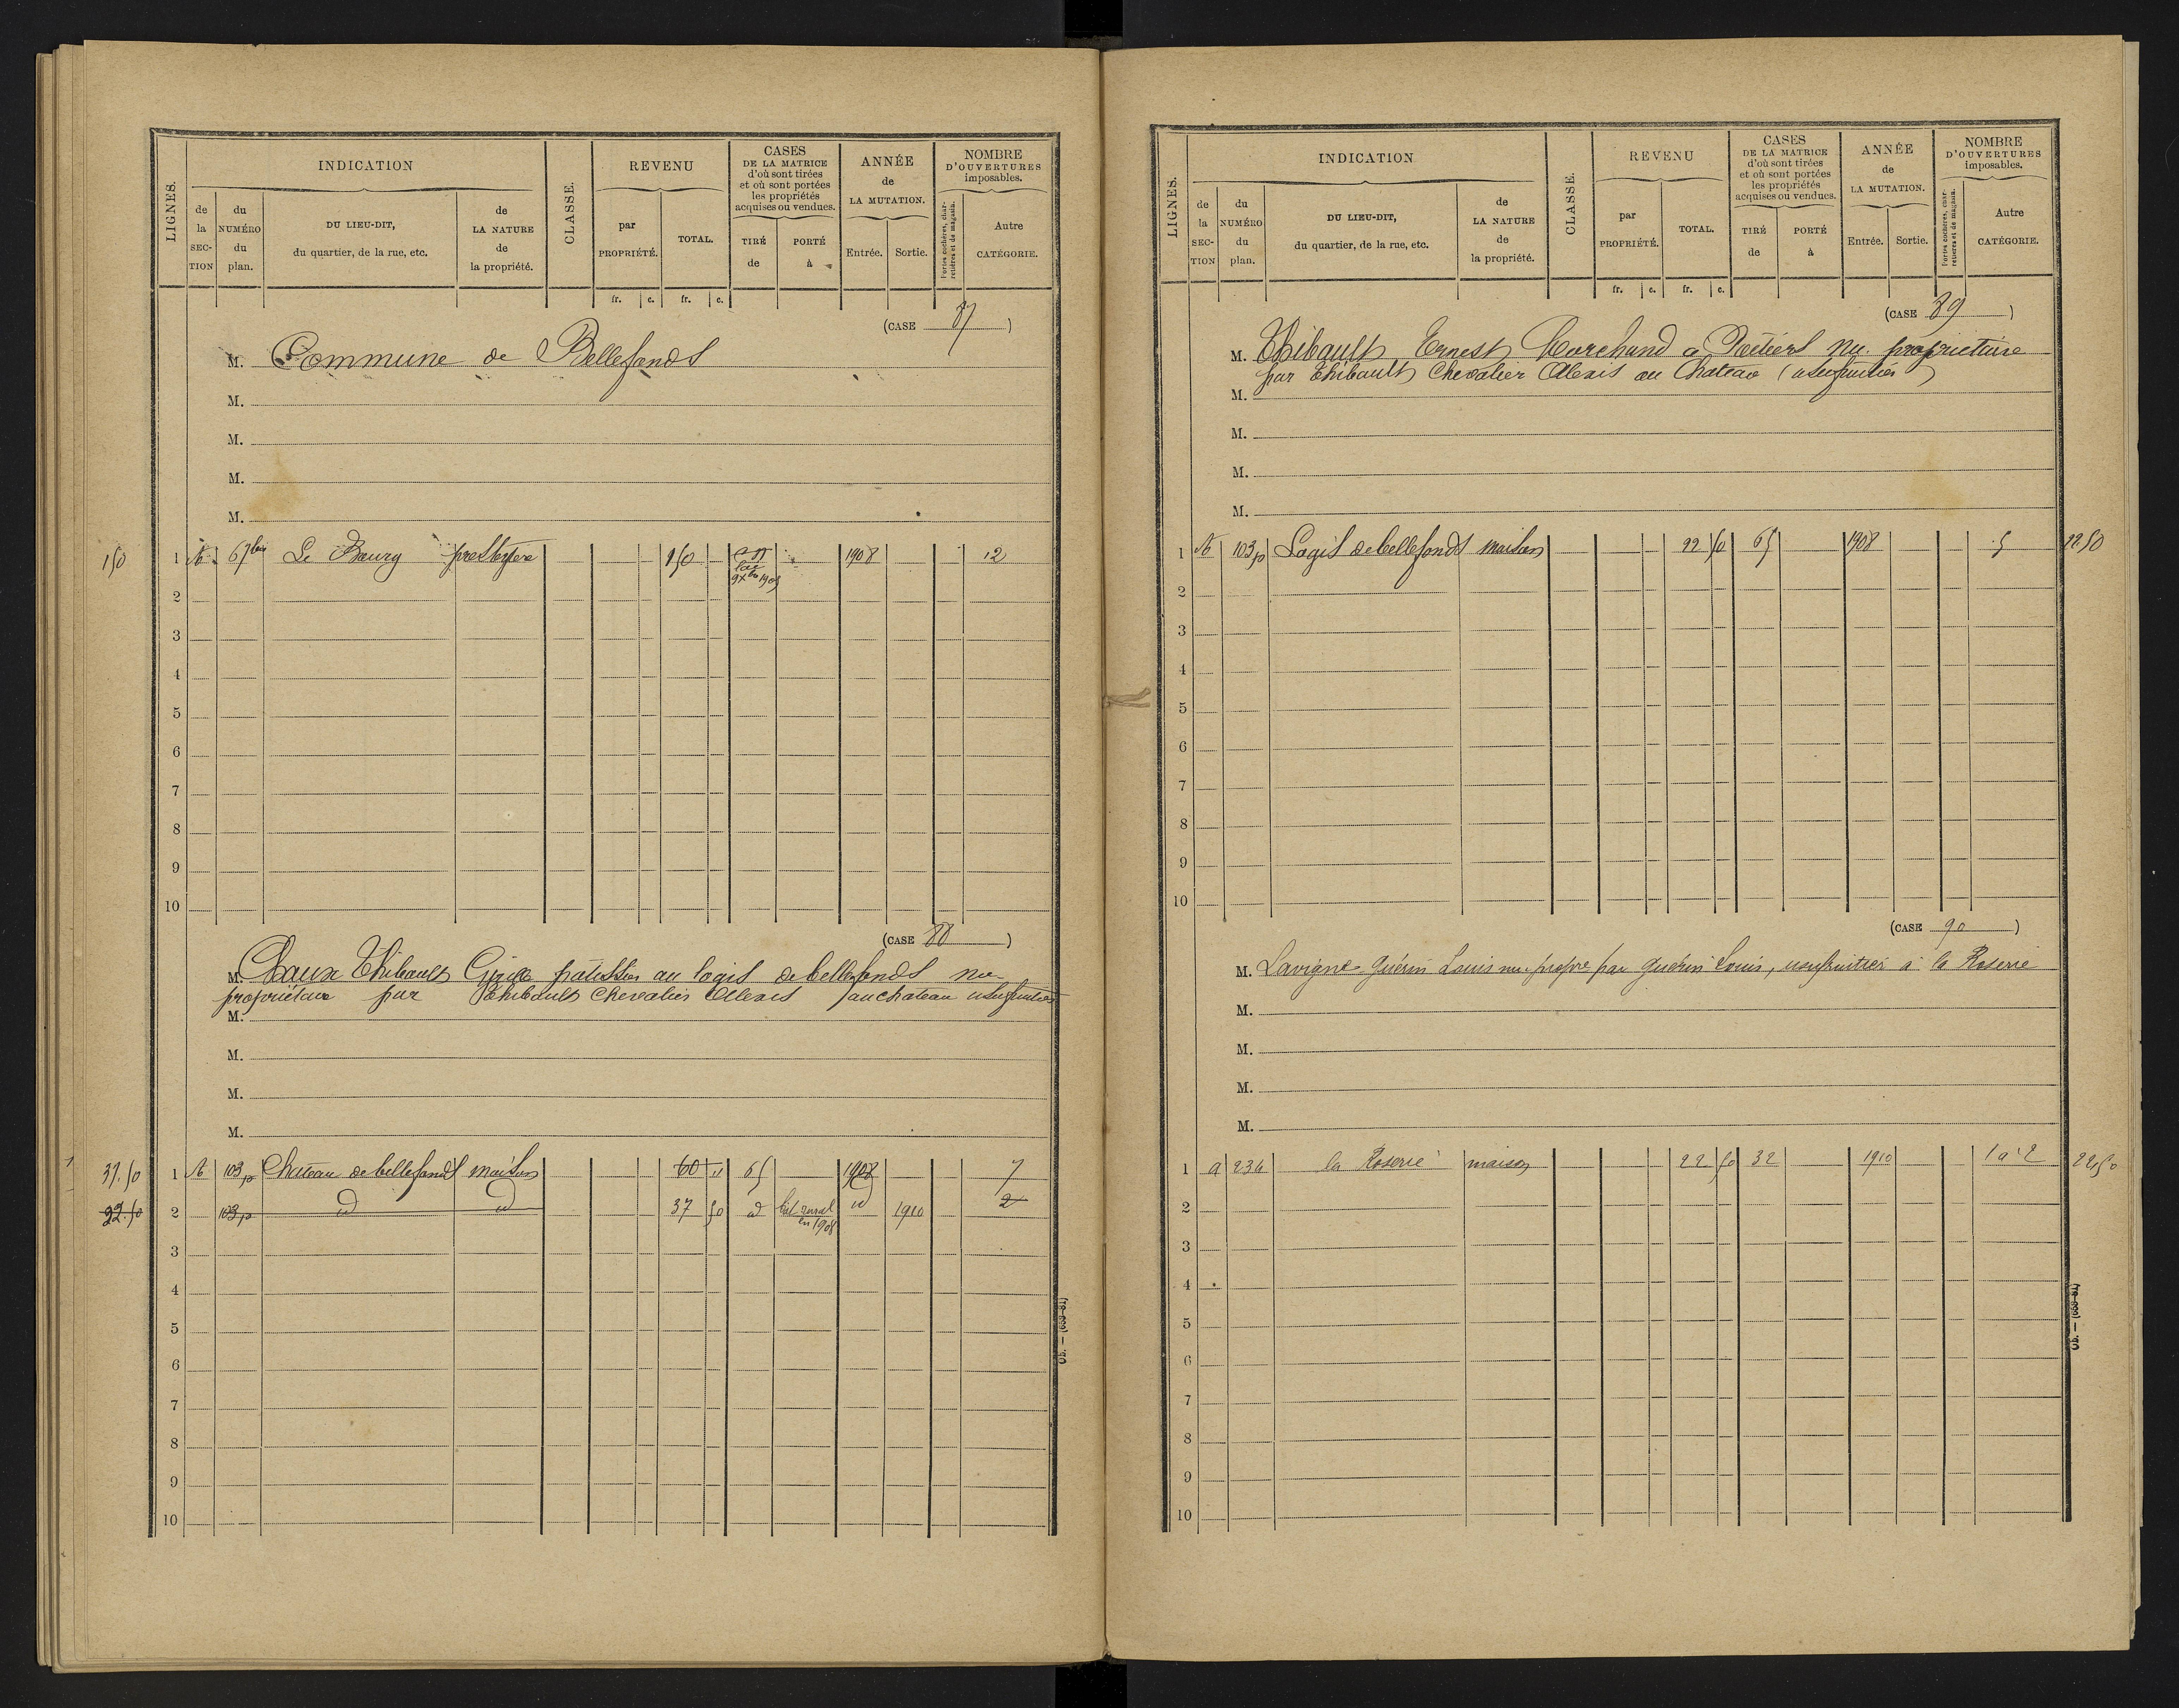 LIGNES.
INDICATION
de la SECTION
du NUMÉRO du plan.
DU LIEU-DIT, du quartier, de la rue, etc.
de LA NATURE de la propriété.
CLASSE.
REVENU
par PROPRIÉTÉ.
TOTAL.
CASES DE LA MATRICE d'où sont tirées et où sont portées les propriétés acquises ou vendues.
TIRÉ de
PORTÉ à
ANNÉE de LA MUTATION.
Entrée.
Sortie.
NOMBRE D'OUVERTURES imposables.
Portes cochères, charretières et de magasin.
Autre CATÉGORIE.
fr. c. fr. c.
(CASE 87)
M. Commune de Bellefonds
M.
M.
M.
M.
150 1 67bis Le Bourg presbytère 150 1908 12
2
3
4
5
6
7
8
9
10
(CASE 88)
M. Chaux Thibault pâtissier au logis de bellefonds nu
propriétaire par Thibault Chevalier Alexis au chateau usufruitier
M.
M.
M.
M.
37.50 1 103p Chateau de bellefonds maison 60 " 65 1908 7
22.50 2 103p id id 37 50 id bât rural en 1908 id 1910 2
3
4
5
6
7
8
9
10
LIGNES.
INDICATION
de la SECTION
du NUMÉRO du plan.
DU LIEU-DIT, du quartier, de la rue, etc.
de LA NATURE de la propriété.
CLASSE.
REVENU
par PROPRIÉTÉ.
TOTAL.
CASES DE LA MATRICE d'où sont tirées et où sont portées les propriétés acquises ou vendues.
TIRÉ de
PORTÉ à
ANNÉE de LA MUTATION.
Entrée.
Sortie.
NOMBRE D'OUVERTURES imposables.
Portes cochères, charretières et de magasin.
Autre CATÉGORIE.
fr. c. fr. c.
(CASE 89)
M. Thibault Ernest Marchand a Poitiers nu. propriétaire
par Thibault Chevalier Alexis au Chateau (usufruitier)
M.
M.
M.
M.
1 103p Logis de bellefonds maison 22 50 65 1908 5 22 50
2
3
4
5
6
7
8
9
10
(CASE 90)
M. Lavigne Guérin Louis nu-propre par Guérin Louis, usufruitier à la Roserie
M.
M.
M.
M.
1 a 234 la Roserie maison 22 50 32 1910 1 a 2 22,50
2
3
4
5
6
7
8
9
10